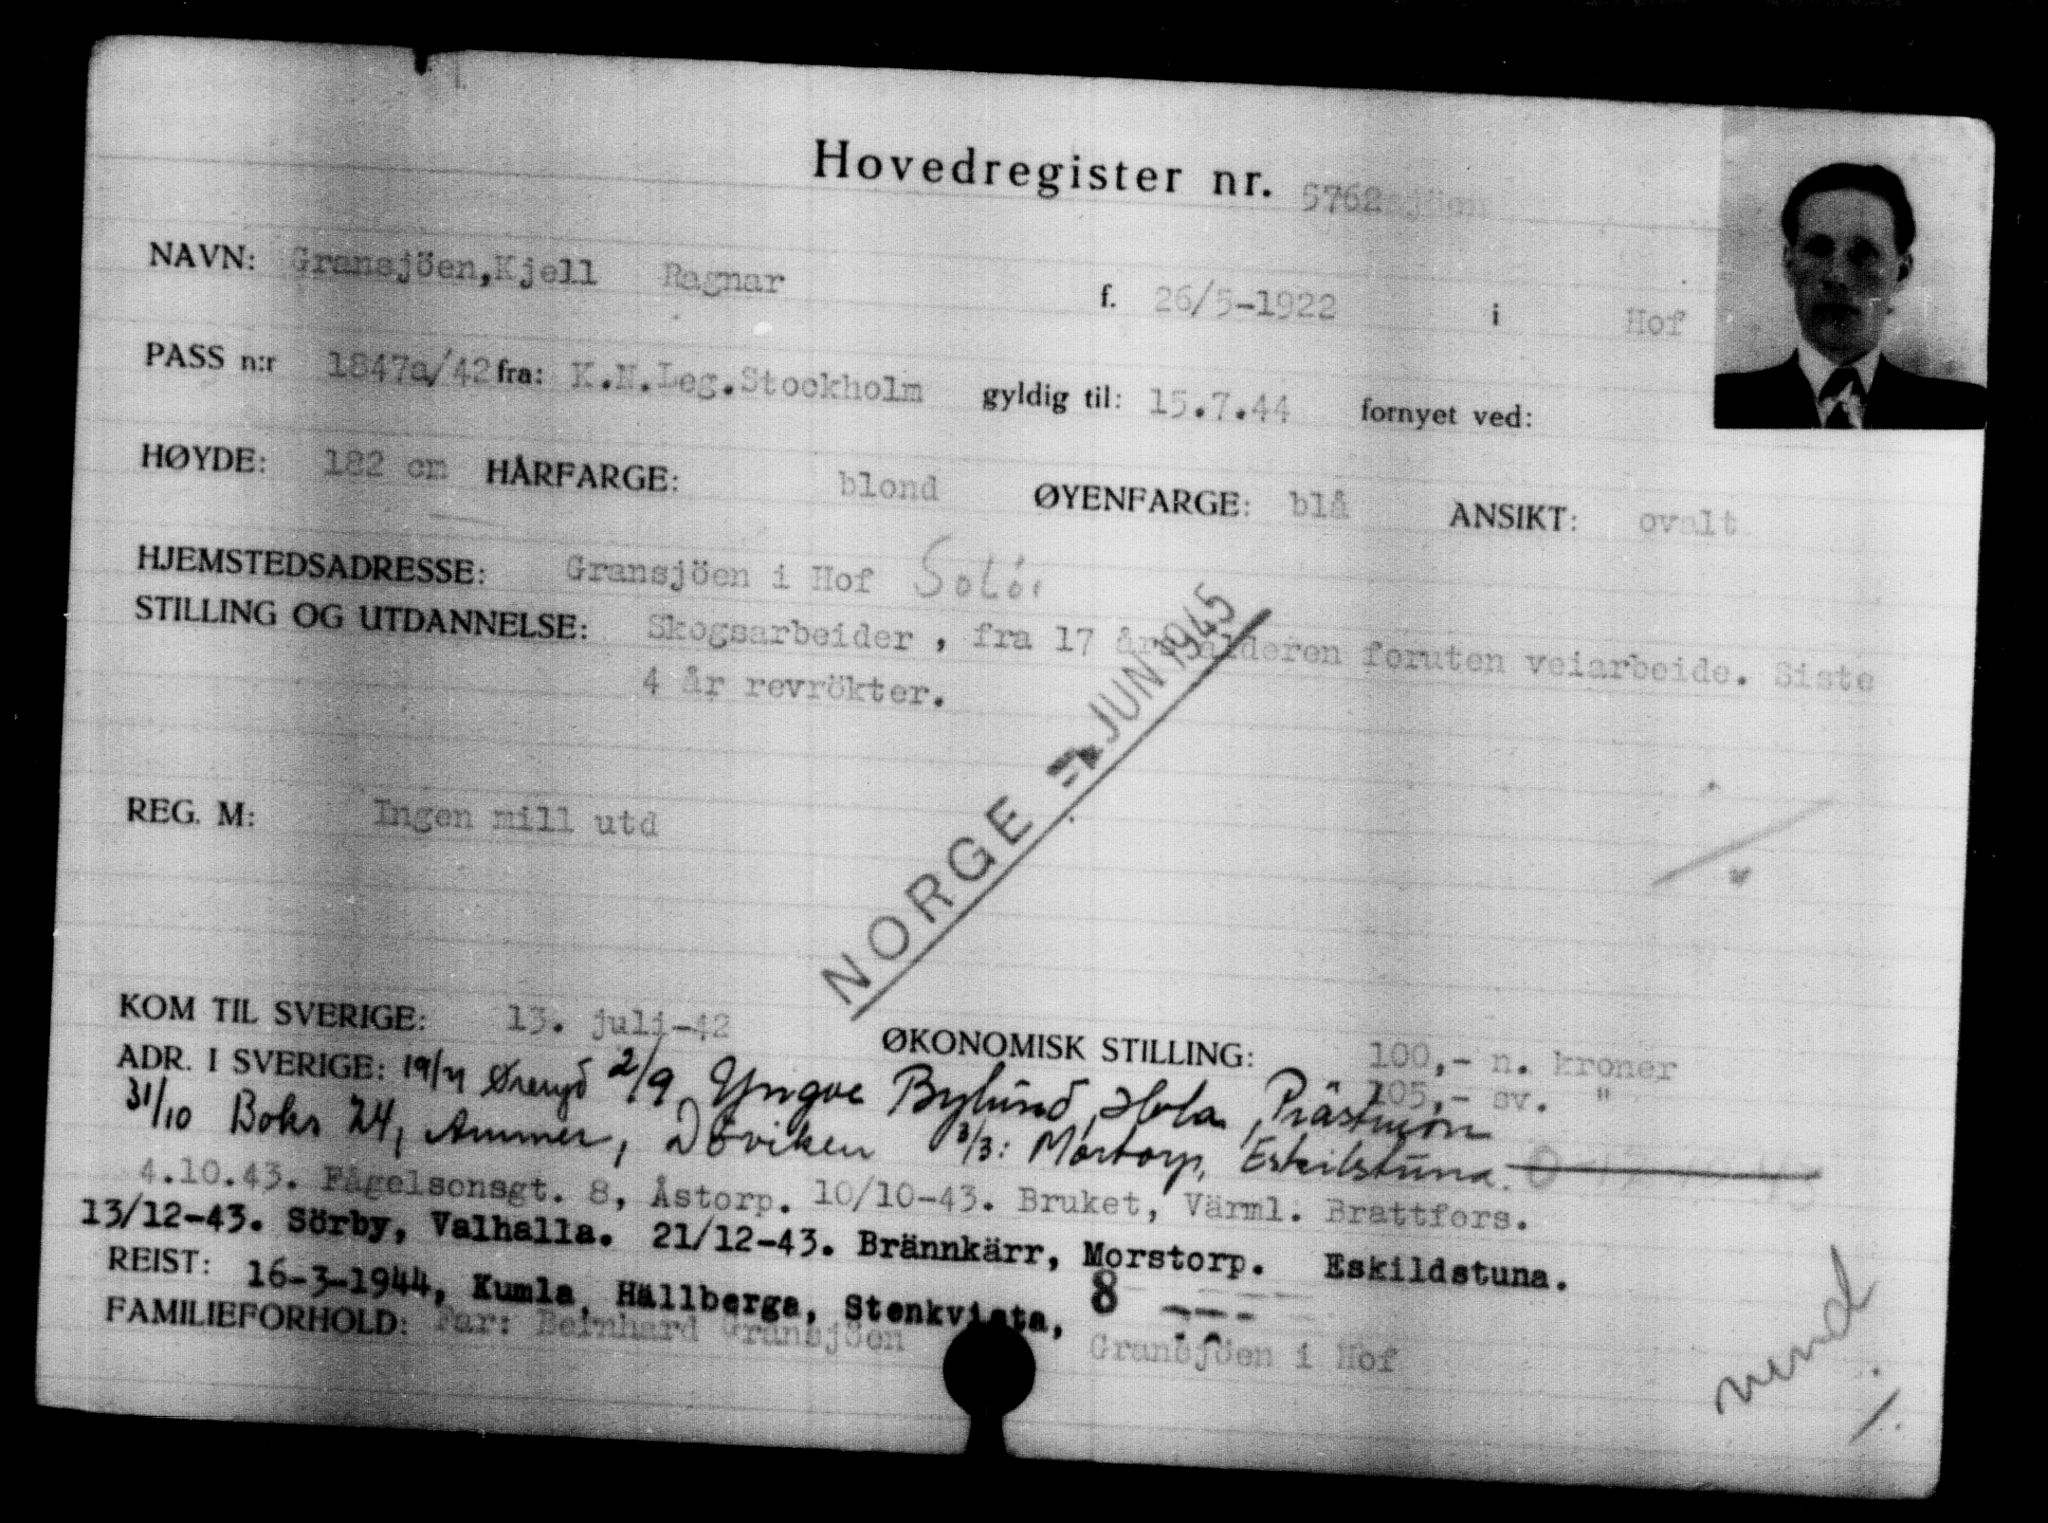 Hovedregister nr. 5762
NAVN: Gransjöen,Kjell Ragnar f. 26/5-1922 i Hof
PASS n:r 1847a/42 fra: K.N.Leg.Stockholm gyldig til: 15.7.44 fornyet ved:
HØYDE: 182 cm HÅRFARGE: blond ØYENFARGE: blå ANSIKT: ovalt
HJEMSTEDSADRESSE: Gransjöen i Hof Solör
STILLING OG UTDANNELSE: Skogsarbeider , fra 17 års alderen foruten veiarbeide. Siste
4 år revrökter.
NORGE JUN 1945
REG. M: Ingen mill utd
KOM TIL SVERIGE: 13. juli-42 ØKONOMISK STILLING: 100,- n. kroner
105,- sv. "
ADR. I SVERIGE: 19/7 Øreryd 2/9 Yngve Bylund, Hola, Prästmon
31/10 Boks 24, Ammer, Döviken 3/3: Mortorp, Eskilstuna.
4.10.43. Fågelsonsgt. 8, Åstorp. 10/10-43. Bruket, Värml. Brattfors.
13/12-43. Sörby, Valhalla. 21/12-43. Brännkärr, Morstorp. Eskildstuna.
REIST: 16-3-1944, Kumla, Hällberga, Stenkvista, 8 -"-
FAMILIEFORHOLD: Far: Bernhard Gransjöen Gransjöen i Hof